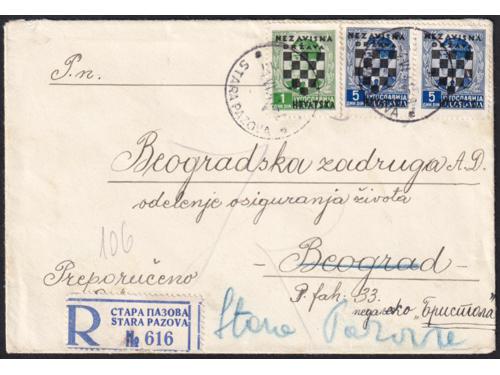 NEZAVISNA
DRŽAVA
HRVATSKA
1
NEZAVISNA
DRŽAVA
HRVATSKA
5
NEZAVISNA
DRŽAVA
HRVATSKA
5
STARA PAZOVA
P.n.
Beogradska zadruga A.D.
odelenje osiguranja života
Beograd
106
Preporučeno
P. fah. 33.
"Бристола"
R
СТАРА ПАЗОВА
STARA PAZOVA
№ 616
Stara Pazova